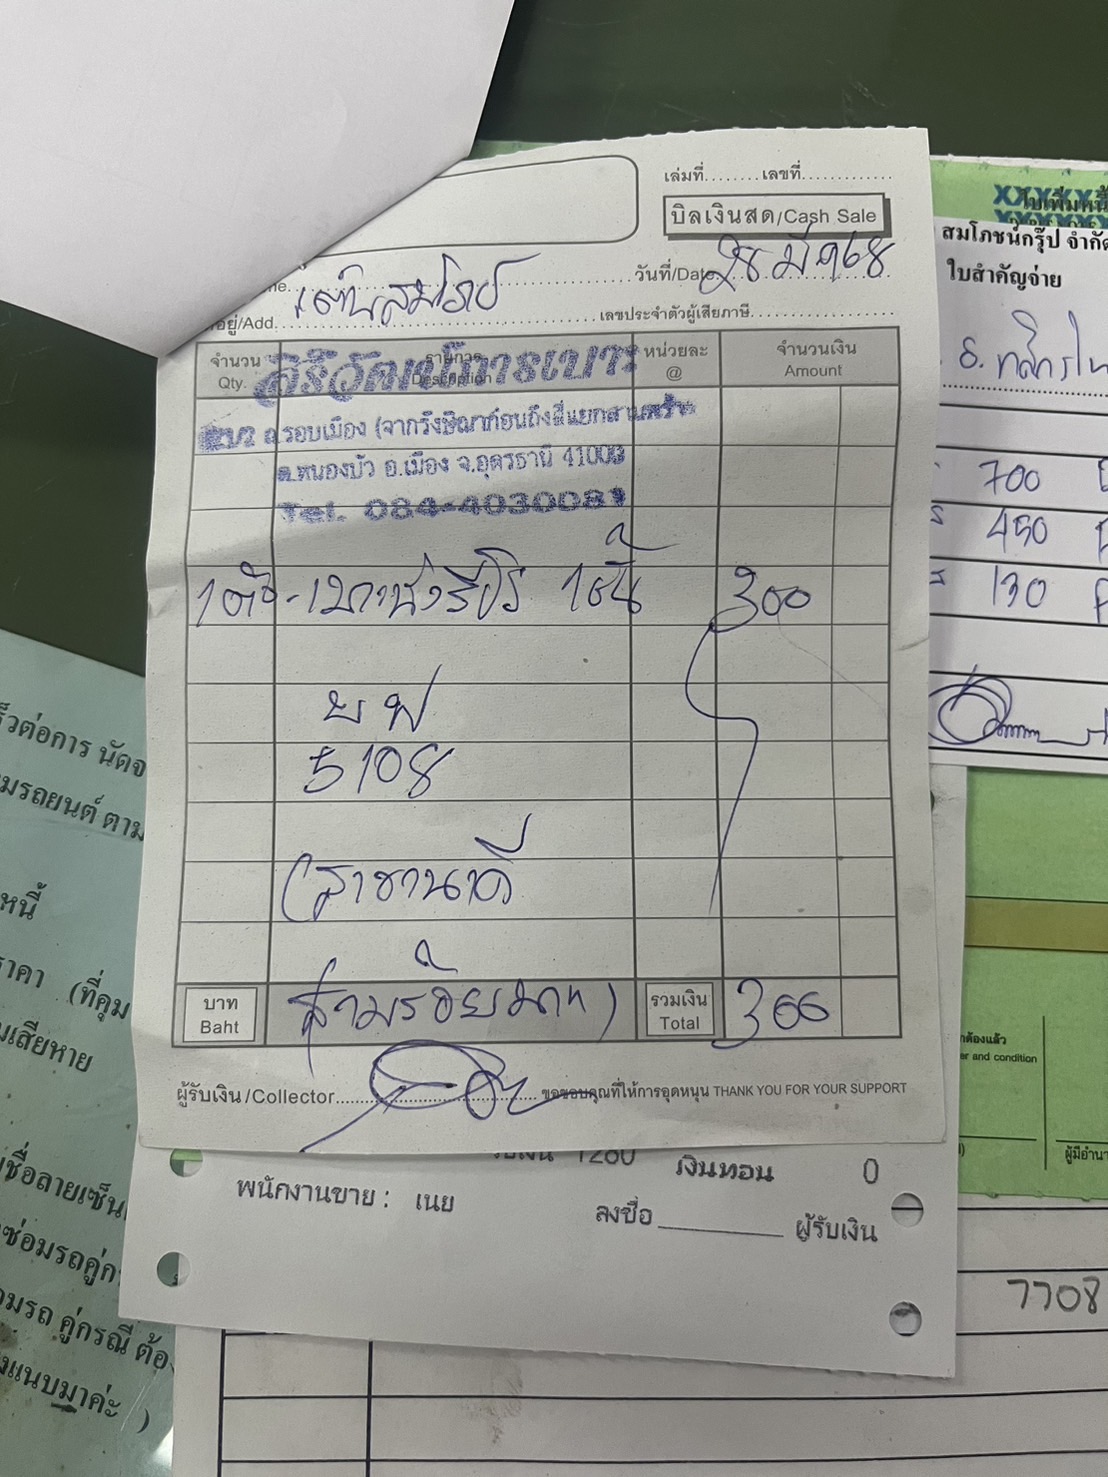 เล่มที่........เลขที่.............
บิลเงินสด/Cash Sale
วันที่/Date 28 มีค 68
เลขประจำตัวผู้เสียภาษี
อยู่/Add.
จำนวน Qty.
รายการ Description
หน่วยละ @
จำนวนเงิน Amount
ศิริวัฒน์การเบาะ
ถ.รอบเมือง (จากรังษิณาก่อนถึงสี่แยกสามพร้าว
ต.หนองบัว อ.เมือง จ.อุดรธานี 41000
Tel. 084-4030081
300
ยฬ
5108
(สาขานาดี
บาท Baht
สามร้อยบาท)
รวมเงิน Total
300
ผู้รับเงิน/Collector
ขอขอบคุณที่ให้การอุดหนุน THANK YOU FOR YOUR SUPPORT
ใบเพิ่มหนี้
สมโภชน์กรุ๊ป จำกัด
ใบสำคัญจ่าย
700
450
130
er and condition
รับเงิน 1280
เงินทอน 0
พนักงานขาย : เนย
ลงชื่อ
ผู้รับเงิน
7708
ร็วต่อการ นัดจ
มรถยนต์ ตาม
หนี้
ราคา (ที่คุม
มเสียหาย
ชื่อลายเซ็น
ซ่อมรถคู่ก
มรถ คู่กรณี ต้อ
งแนบมาค่ะ )